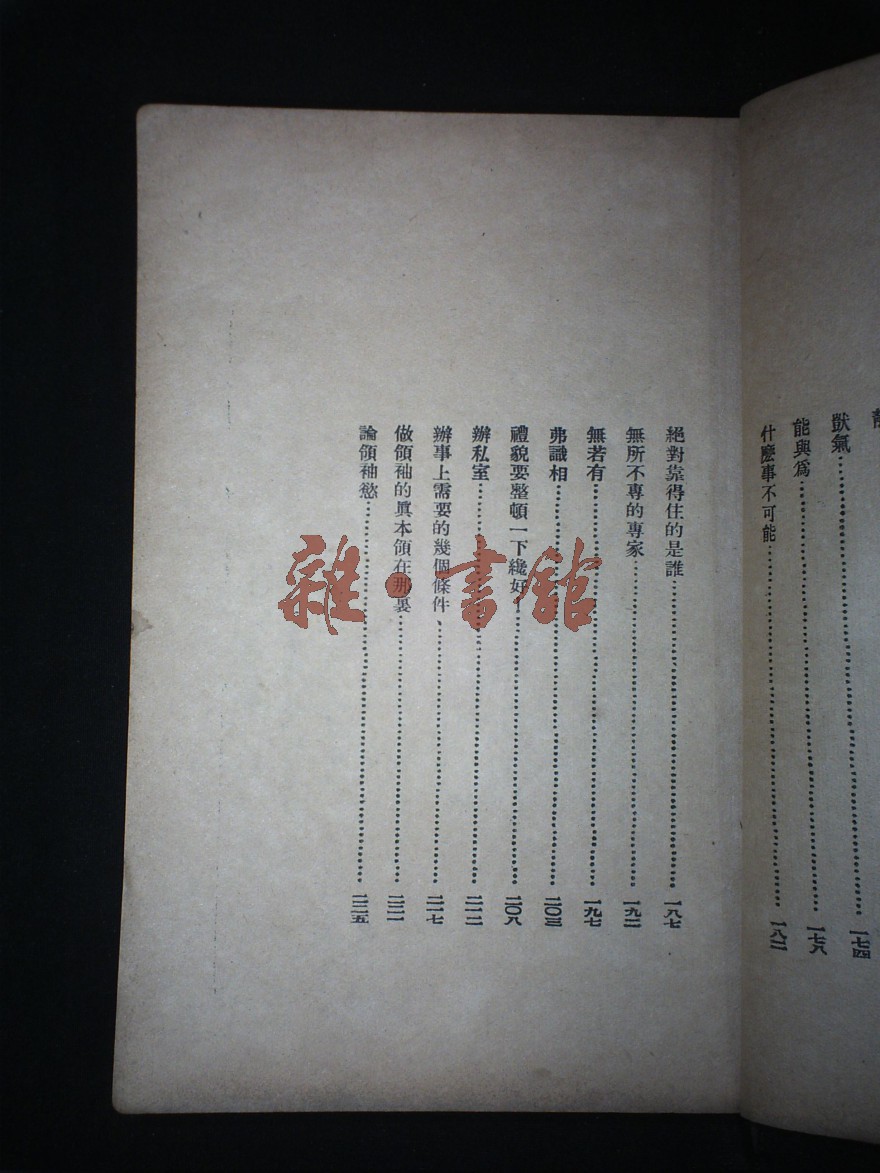 獃氣……一七四
能與爲……一七八
什麼事不可能……一八二
絕對靠得住的是誰……一八七
無所不專的專家……一九二
無若有……一九七
弗識相……二〇三
禮貌要整頓一下纔好！……二〇八
辦私室……二一二
辦事上需要的幾個條件……二一七
做領袖的眞本領在那裏……二二一
論領袖慾……二二五
雜·書館